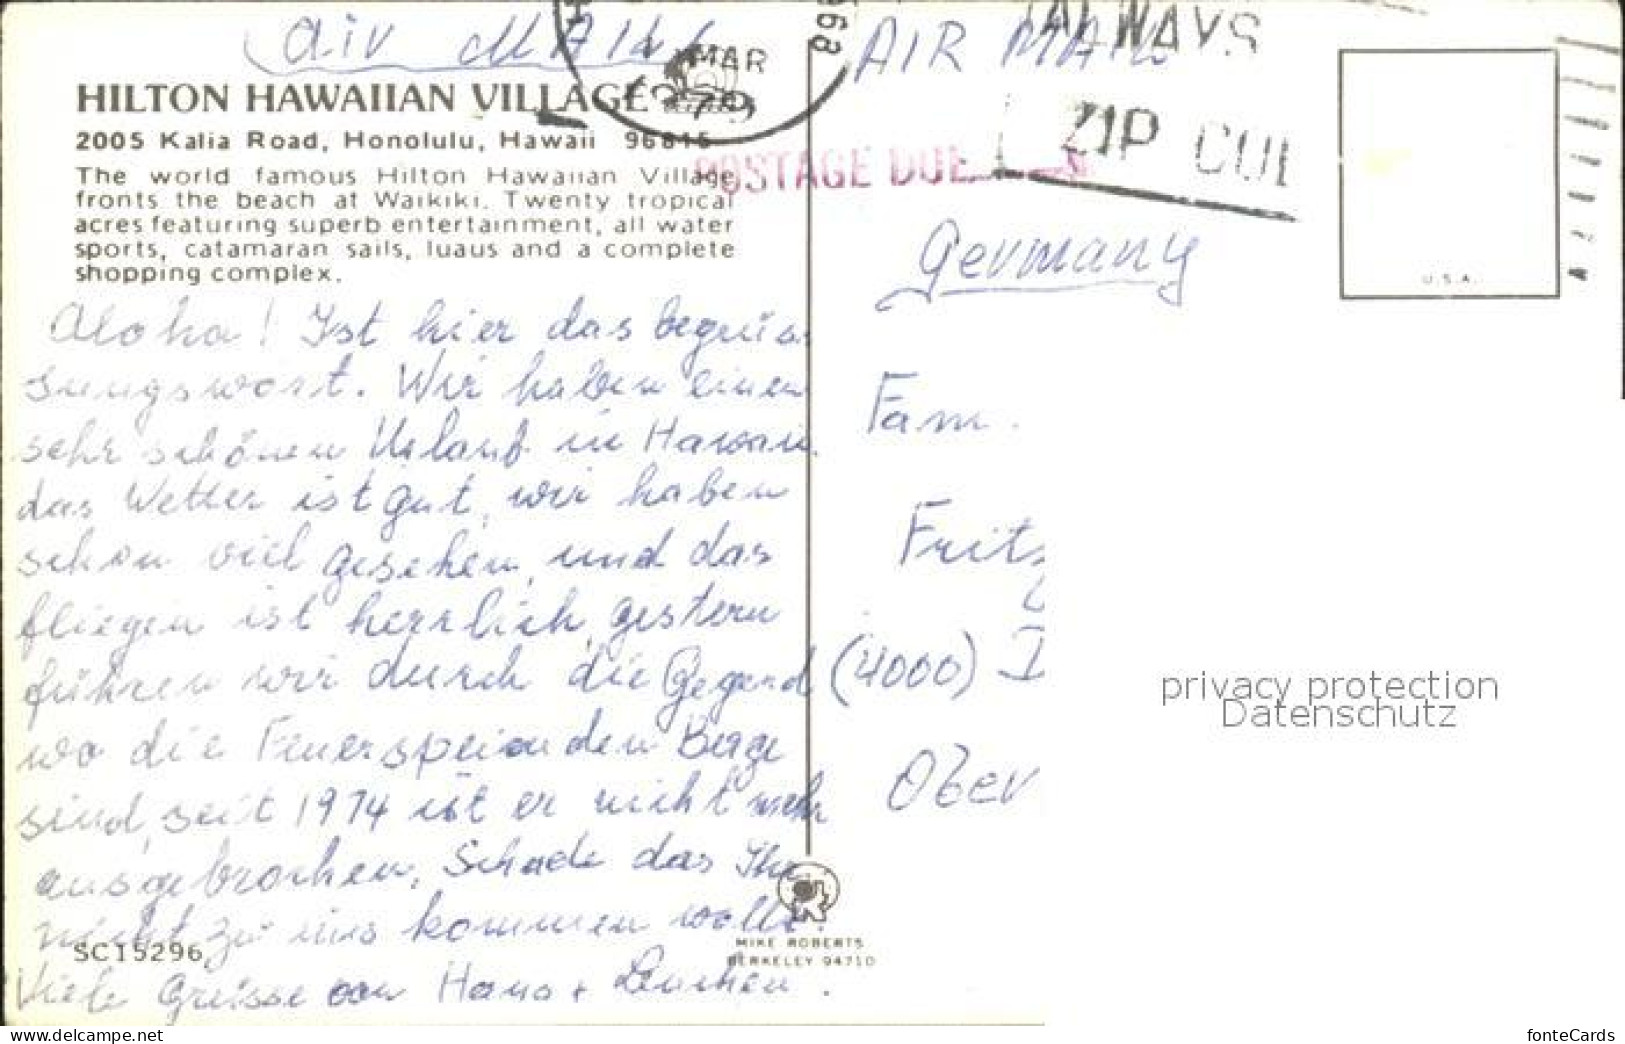 Air Mail
AIR MAIL
MAR
79
968
ALWAYS
ZIP
HILTON HAWAIIAN VILLAGE
2005 Kalia Road, Honolulu, Hawaii 96815
The world famous Hilton Hawaiian Village
fronts the beach at Waikiki. Twenty tropical
acres featuring superb entertainment, all water
sports, catamaran sails, luaus and a complete
shopping complex.
POSTAGE DUE
U.S.A.
Aloha! Ist hier das begrüs
sungswort. Wir haben einen
sehr schönen Urlaub in Hawaii.
das Wetter ist gut, wir haben
schon viel gesehen, und das
fliegen ist herrlich, gestern
führen wir durch die Gegend
wo die Feuerspeienden Berge
sind, seit 1974 ist er nicht mehr
ausgebrochen. Schade das Ihr
nicht zu uns kommen wollt.
Viele Grüsse von Hans + Lenchen.
Germany
Fam.
Fritz
(4000)
Ober
privacy protection
Datenschutz
SC15296
MIKE ROBERTS
BERKELEY 94710
www.delcampe.net
fonteCards